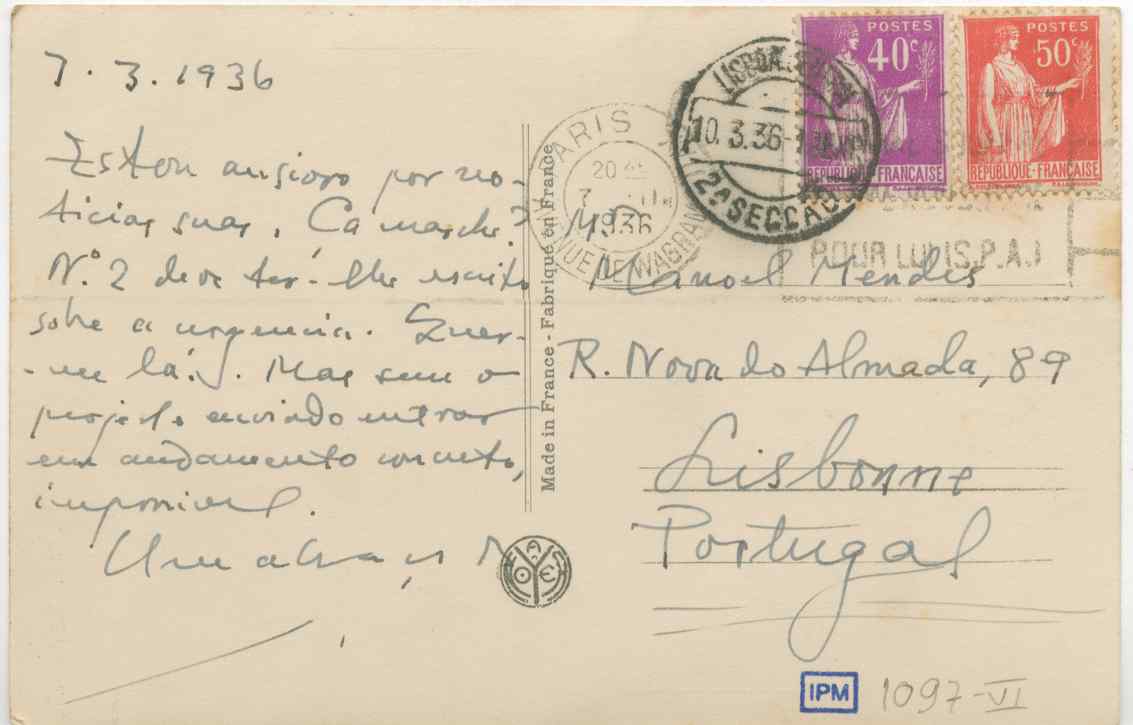 7.3.1936
Estou ansioso por no-
ticias suas. Ça marche?
N.º 2 deve ter-lhe escrito
sobre a urgencia. Quer-
-me lá. Mas sem o
projecto enviado entrar
em andamento concreto,
impossivel.
Um abraço
Made in France - Fabriqué en France
PARIS
20 45
7 III
1936
AVENUE DE WAGRAM
LISBOA
10.3.36
2ª SECCÃO
POSTES
40c
REPUBLIQUE-FRANÇAISE
POSTES
50c
REPUBLIQUE-FRANÇAISE
POUR
Manoel Mendes
R. Nova do Almada, 89
Lisbonne
Portugal
IPM
1097-VI